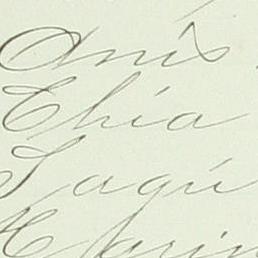 Anís
Chía
Sagú
Harin